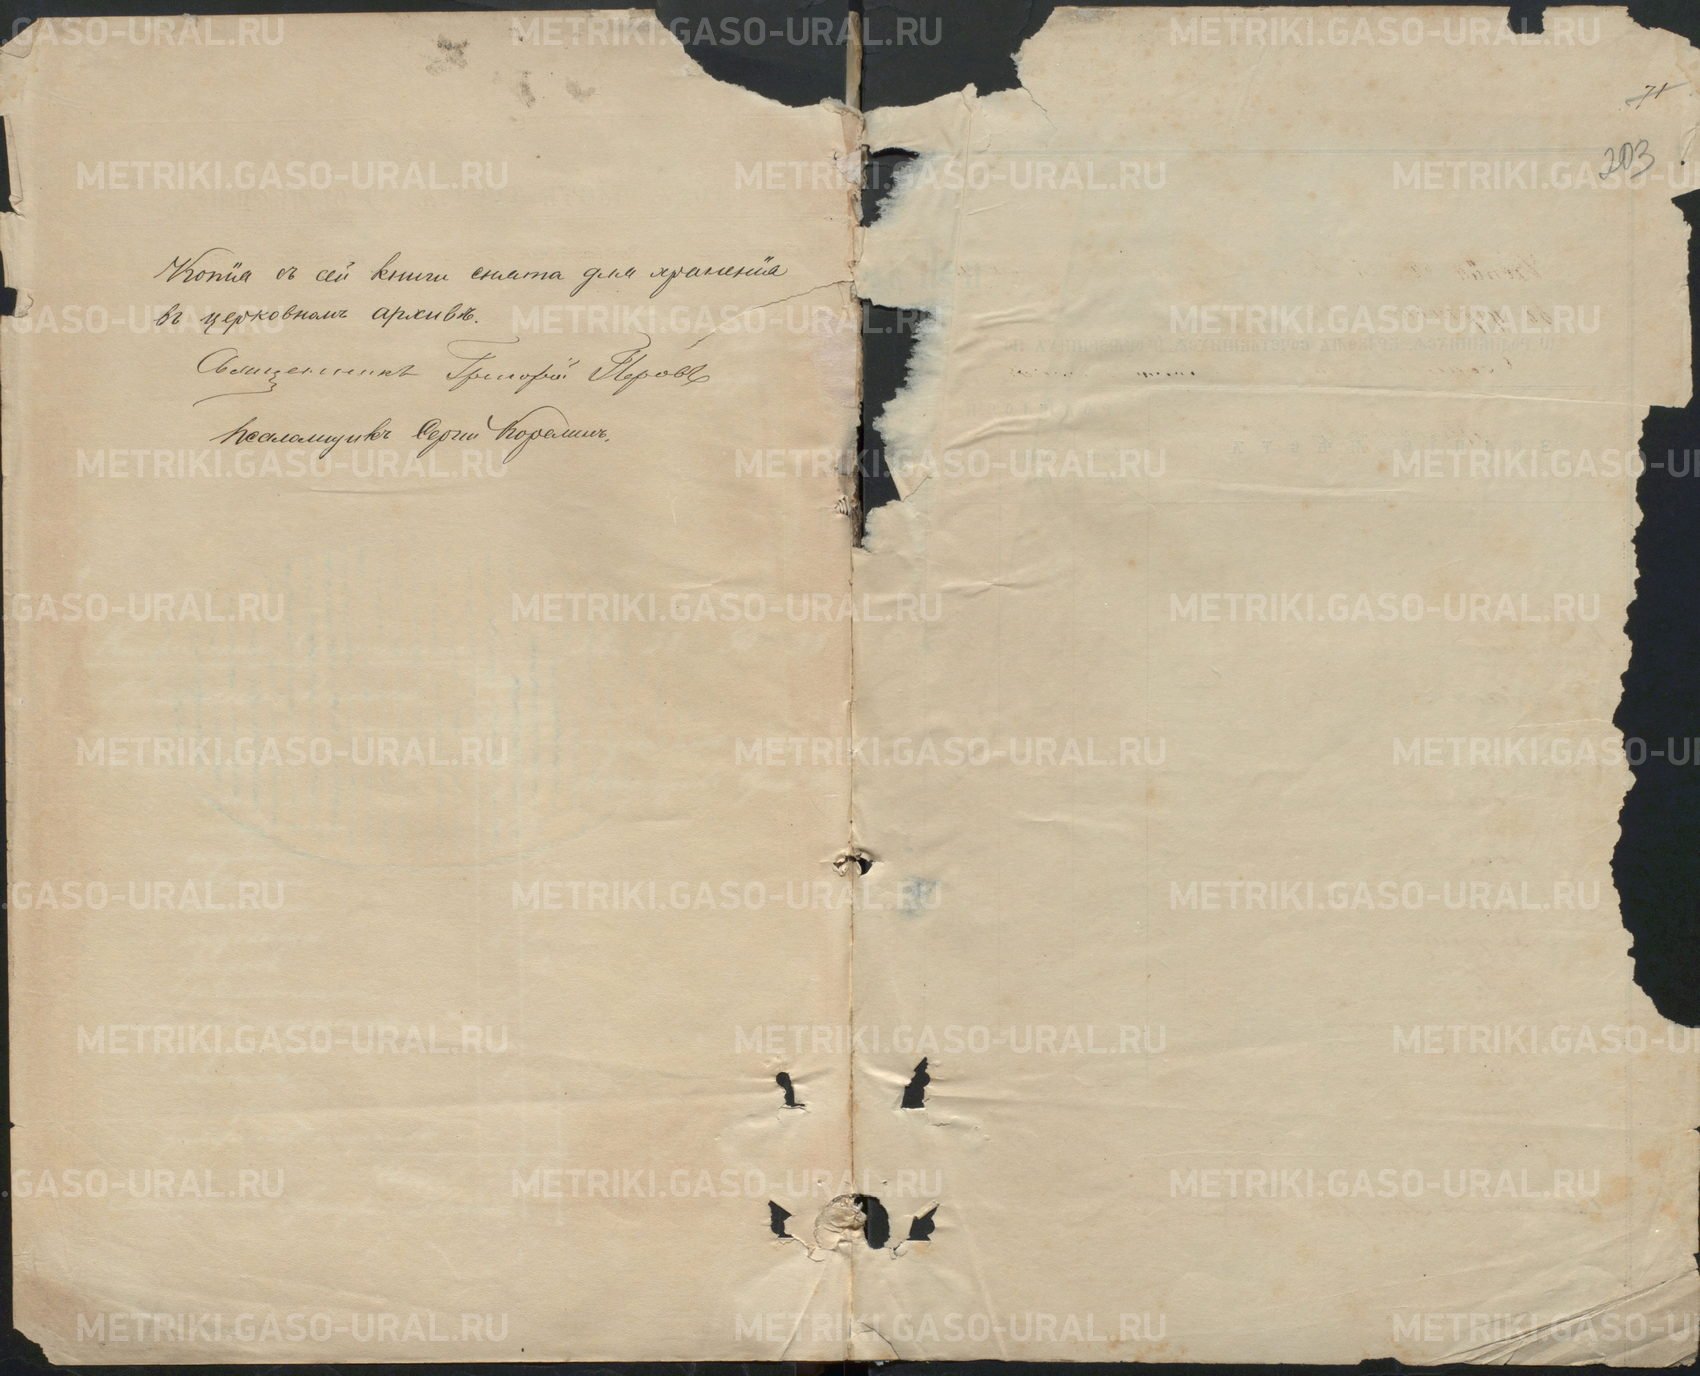 Копія съ сей книги снята для храненія
въ церковномъ архивѣ.
Священникъ Григорій Перовъ
Псаломщикъ Сергій Корелинъ.
71
203
METRIKI.GASO-URAL.RU